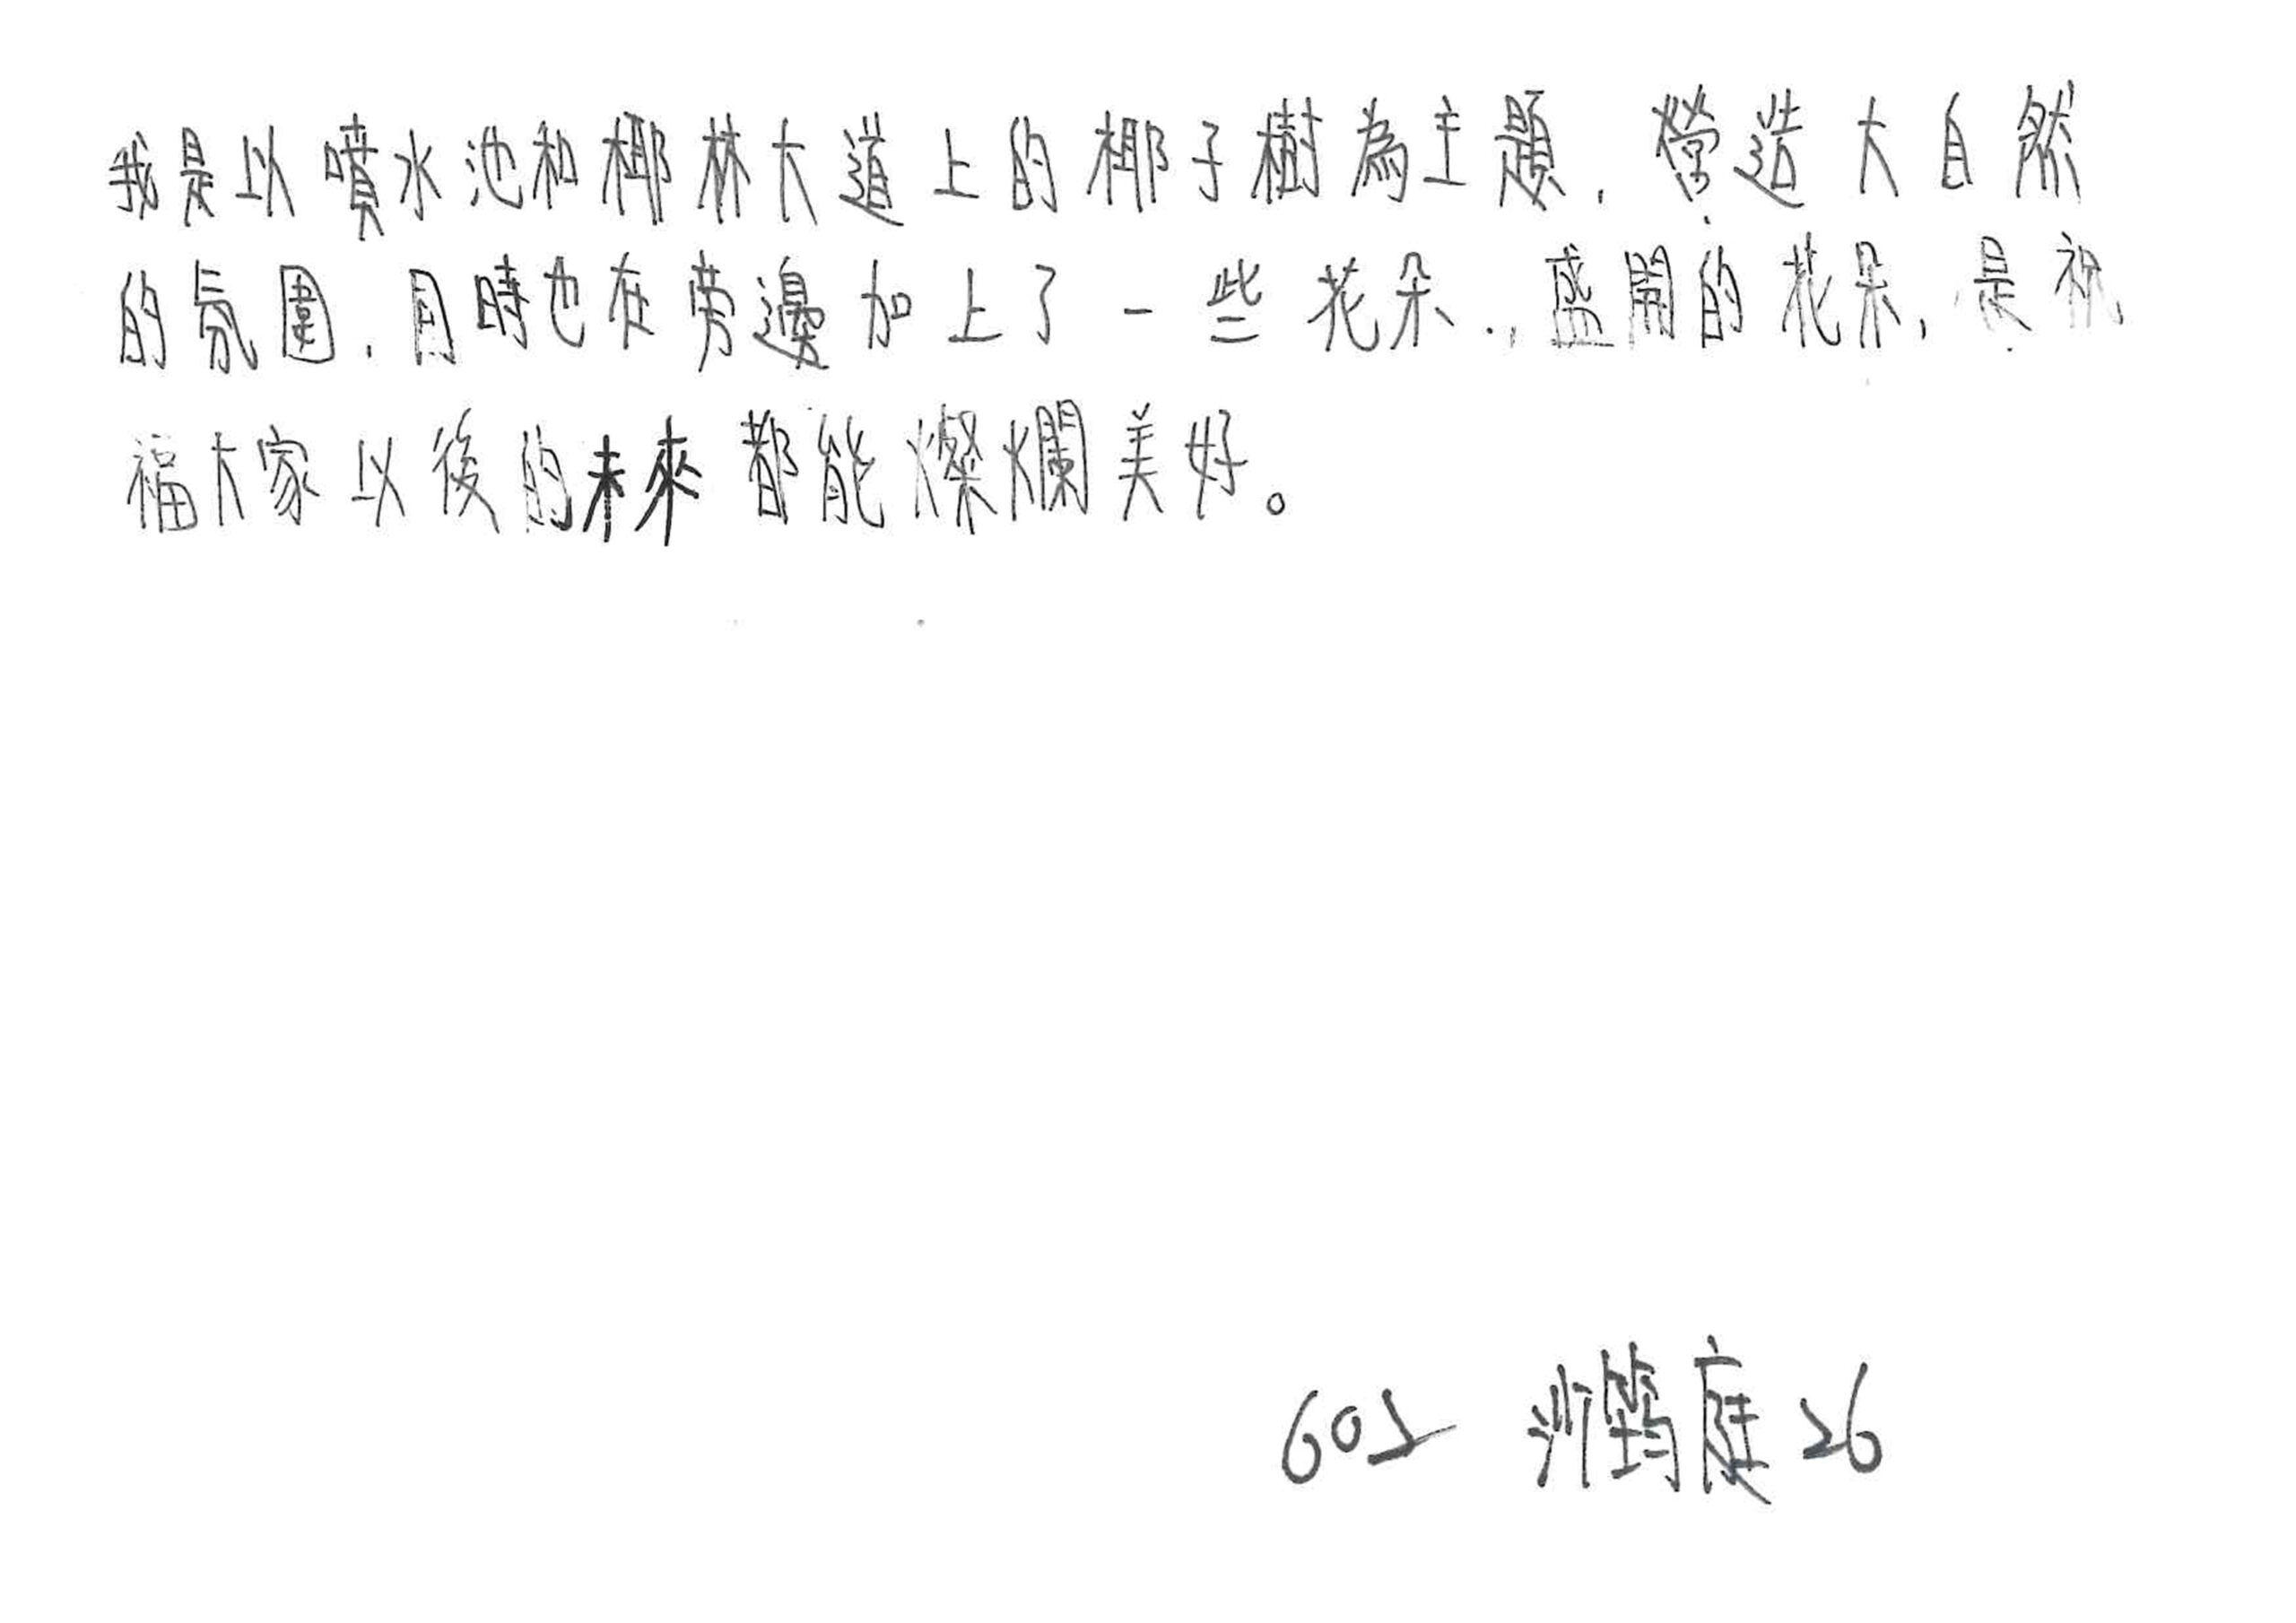 我是以噴水池和椰林大道上的椰子樹為主題，營造大自然
的氛圍，同時也在旁邊加上了一些花朵，盛開的花朵，是祝
福大家以後的未來都能燦爛美好。
601 沙筠庭 26